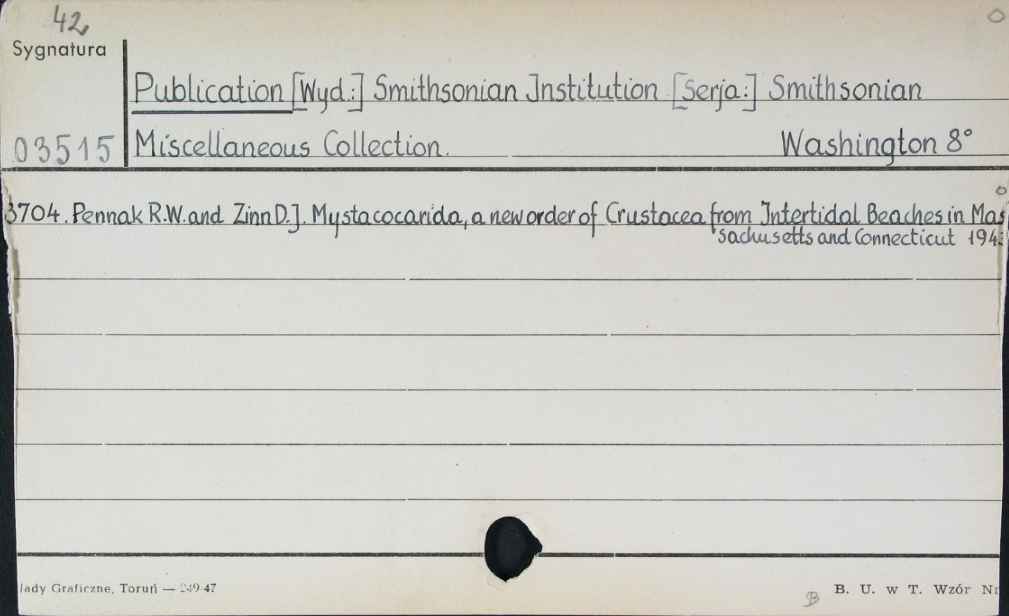 42
Sygnatura
Publication [Wyd.:] Smithsonian Institution [Serja:] Smithsonian
03515 Miscellaneous Collection. Washington 8°
3704. Pennak R.W. and Zinn D.J. Mystacocarida, a new order of Crustacea from Intertidal Beaches in Mas
sachusetts and Connecticut 194
łady Graficzne, Toruń — 249-47
B. U. w T. Wzór Nr